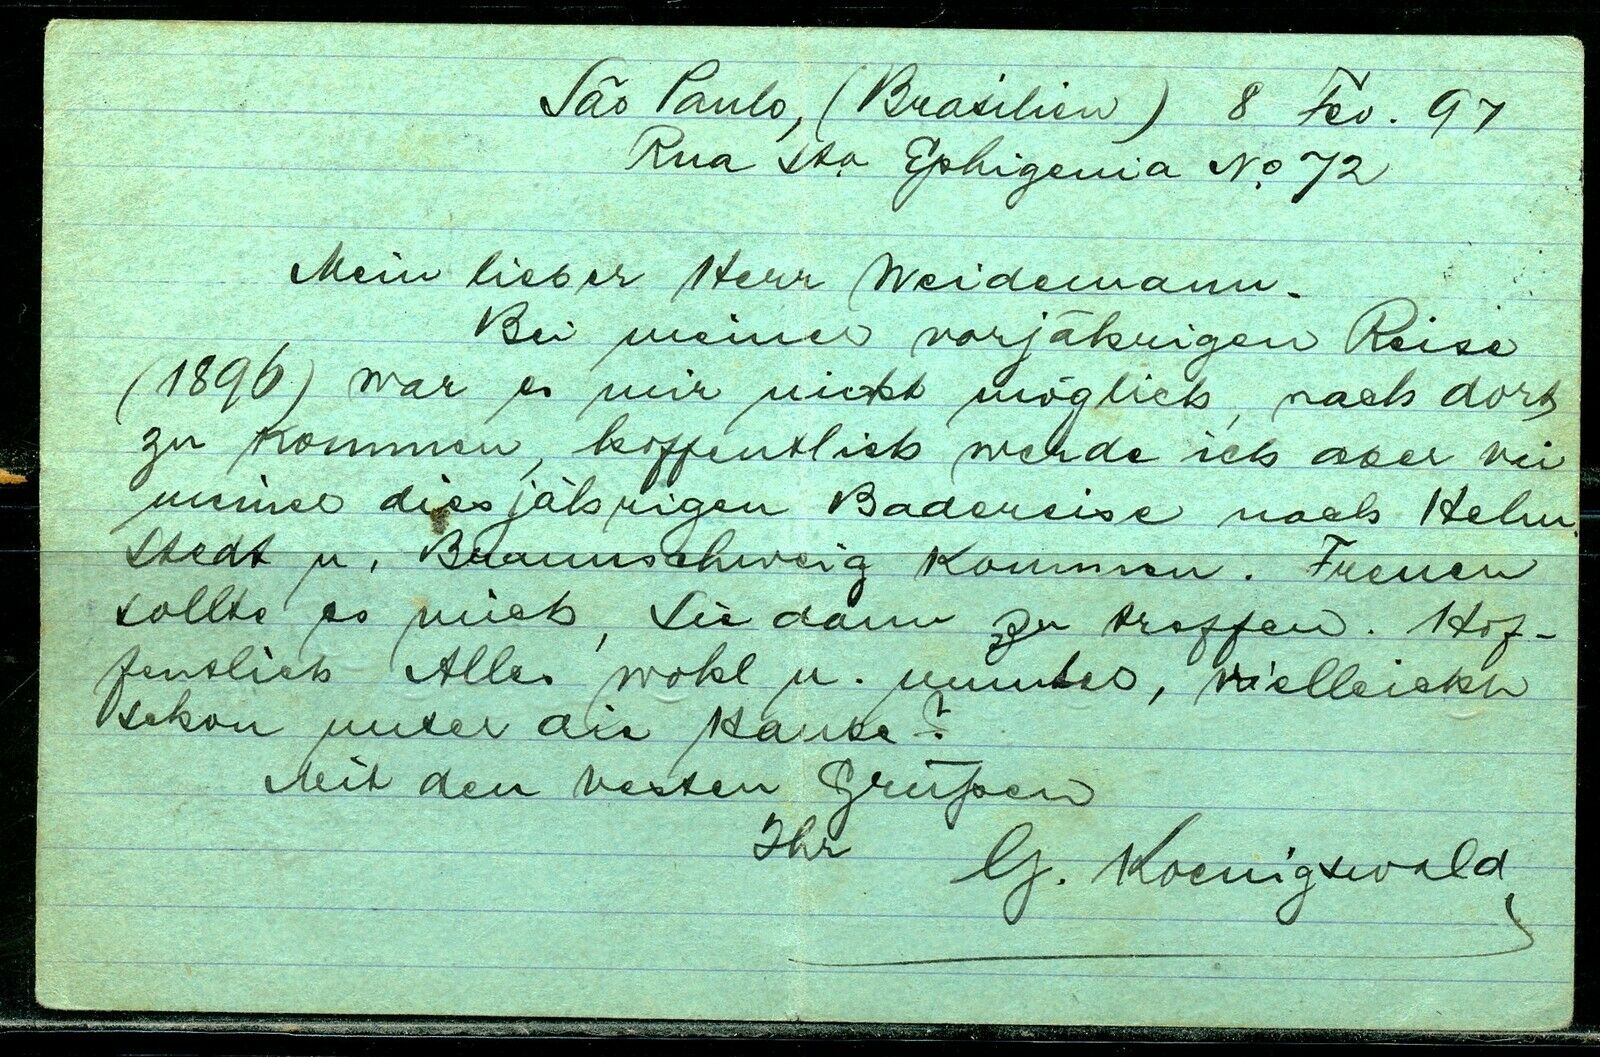 São Paulo, (Brasilien) 8 Feb. 97
Rua Sta Ephigenia No 72
Mein lieber Herr Weidemann.
Bei meiner vorjährigen Reise
(1896) war es mir nicht möglich, nach dort
zu kommen, hoffentlich werde ich aber bei
meiner diesjährigen Badereise nach Helm
stedt u. Braunschweig kommen. Freuen
sollte es mich, Sie dann zu treffen. Hof-
fentlich Alles wohl u. munter, vielleicht
schon unter die Haube?
Mit den besten Grüßen
Ihr G. Koenigswald